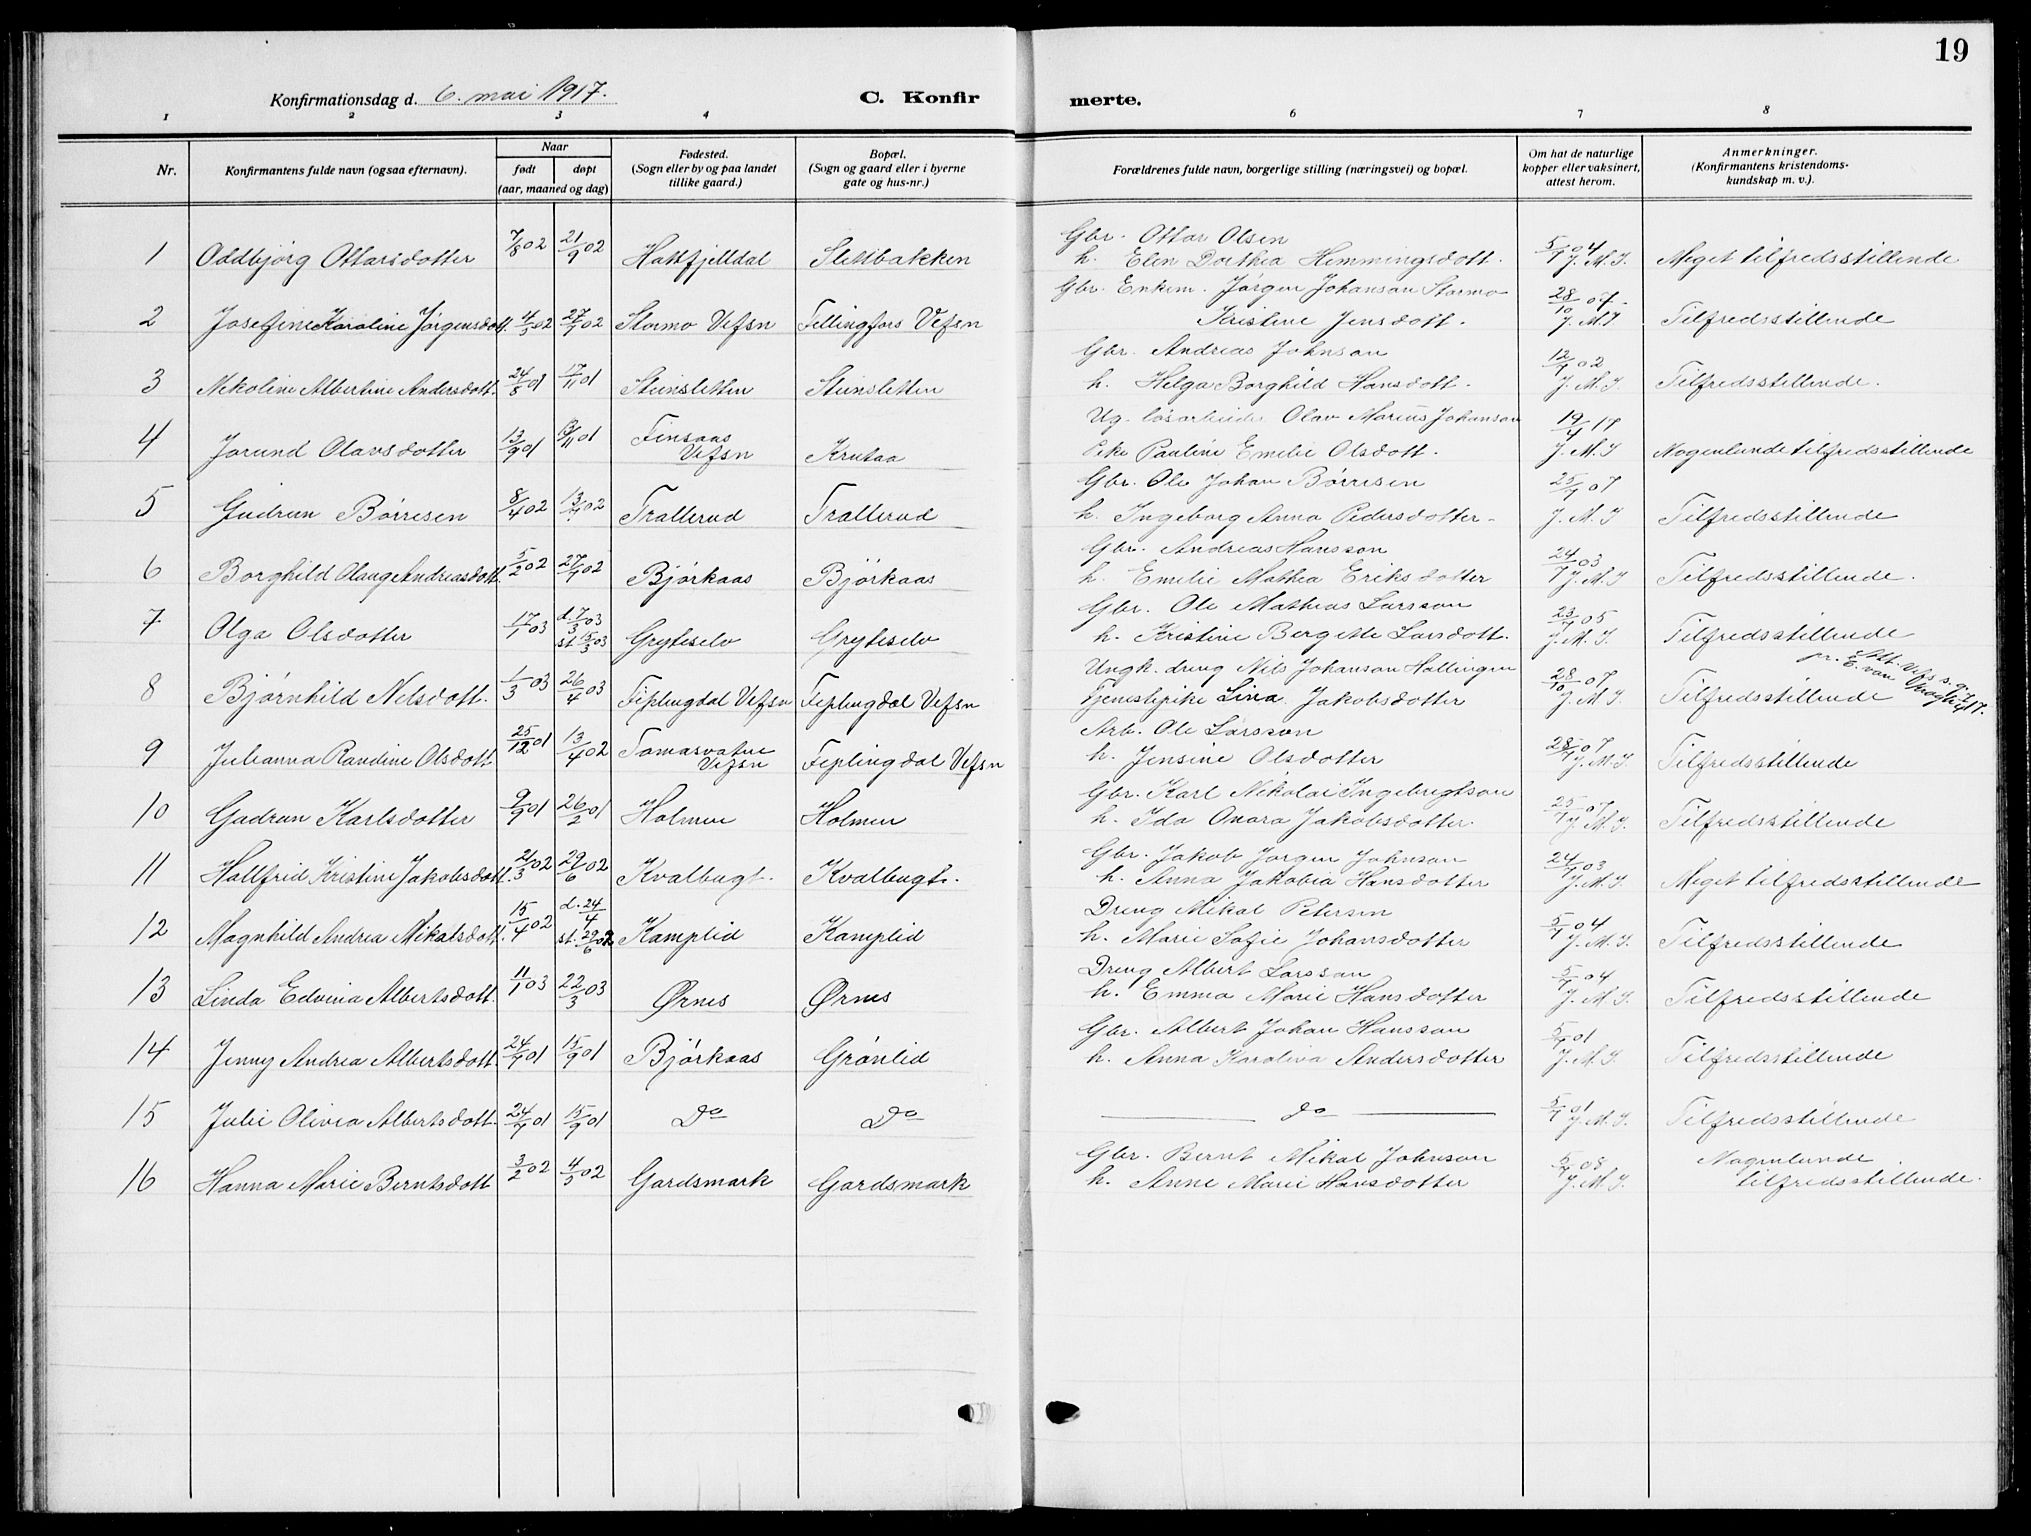 19
Konfirmationsdag d. 6. mai 1917. C. Konfirmerte.
1 2 3 4 6 7 8
Nr. Konfirmantens fulde navn (ogsaa efternavn). Naar født døpt (aar, maaned og dag) Fødested. (Sogn eller by og paa landet tillike gaard.) Bopæl. (Sogn og gaard eller i byerne gate og hus-nr.) Forældrenes fulde navn, borgerlige stilling (næringsvei) og bopæl. Om hat de naturlige kopper eller vaksinert, attest herom. Anmerkninger. (Konfirmantens kristendoms-kundskap m. v.).
1 Oddbjørg Ottarsdotter 7/8 02 21/9 02 Hattfjelldal Slettbakken Gbr. Ottar Olsen
h. Elen Dorthea Hemmingsdott. 5/7 04 J. M. J. Meget tilfredsstillende
2 Josefine Karoline Jørgensdott. 4/3 02 27/7 02 Stormo Vefsn Fellingfors Vefsn Gbr. Enkem. Jørgen Johanson Stormo
Kristine Jensdott. 28/10 07 J. M. J Tilfredsstillende
3 Nikoline Albertine Andersdott. 24/8 01 17/11 01 Steinsletten Steinsletten Gbr. Andreas Johnson
h. Helga Borghild Hansdott. 12/7 02 J. M. J Tilfredsstillende.
4 Jorund Olavsdotter 13/9 01 /11 01 Finsaas Vefsn Krutaa Ug. Olav Marius Johanson
Pike Pauline Emelie Olsdott. 19/4 17 J. M. J Nogenlunde tilfredsstillende
5 Gudrun Børresen 8/4 02 13/7 02 Trallerud Trallerud Gbr. Ole Johan Børresen
h. Ingeborg Anna Pedersdotter 25/7 07 J. M. J Tilfredsstillende
6 Borghild Olauge Andreasdott. 5/2 02 27/7 02 Bjørkaas Bjørkaas Gbr. Andreas Hansson
h. Emelie Mathea Eriksdotter 24/7 03 J. M. J Tilfredsstillende.
7 Olga Olsdotter 17/1 03 d. 7/3 03 st. 15/3 03 Gryteselv Gryteselv Gbr. Ole Mathias Larsson
h. Kristine Bergette Larsdott. 23/7 05 J. M. J. Tilfredsstillende
8 Bjørnhild Nilsdott. 1/3 03 26/4 03 Fiplingdal Vefsn Fiplingdal Vefsn Ungk. dreng Nils Johanson Hallingen
Tjenestpike Lina Jakobsdotter 28/10 07 J. M. J. Tilfredsstillende
9 Julianna Randine Olsdott. 25/12 01 13/4 02 Tomasvatne Vefsn Fiplingdal Vefsn Arb. Ole Larsson
h. Jensine Olsdotter 28/7 07 J. M. J. Tilfredsstillende
10 Gudrun Karlsdotter 9/9 01 26/2 01 Holmen Holmen Gbr. Karl Nikolai Ingebrigtson
h. Ida Onara Jakobsdotter. 25/7 07 J. M. J. Tilfredsstillende
11 Hallfrid Kristine Jakobsdott. 21/3 02 29/6 02 Kvalbugt. Kvalbugt. Gbr. Jakob Jørgen Johnson
h. Anna Jakobia Hansdotter 24/7 03 J. M. J. Meget tilfredsstillende
12 Magnhild Andrea Mikalsdott. 15/4 02 d. 24/4 st. 29/6 02 Kamplid Kamplid Dreng Mikal Petersen
h. Marie Sofie Johansdotter 5/7 04 J. M. J. Tilfredsstillende
13 Linda Edvina Albertsdott. 11/1 03 22/3 03 Ørnes Ørnes Dreng Albert Larsson
h. Emma Marie Hansdotter 5/7 04 J. M. J. Tilfredsstillende
14 Jenny Andrea Albertsdott. 24/7 01 15/9 01 Bjørkaas Grønlid Gbr. Albert Johan Hansson
h. Anna Karoliva Andersdotter 5/7 01 J. M. J. Tilfredsstillende
15 Julie Olivia Albertsdott. 24/7 01 15/9 01 Do Do do 5/7 01 J. M. J. Tilfredsstillende
16 Hanna Marie Berntsdott 3/2 02 4/5 02 Gardsmark Gardsmark Gbr. Bernt Mikal Johnson
h. Anne Marie Hansdotter 5/7 08 J. M. J. Nogenlunde tilfredsstillende.